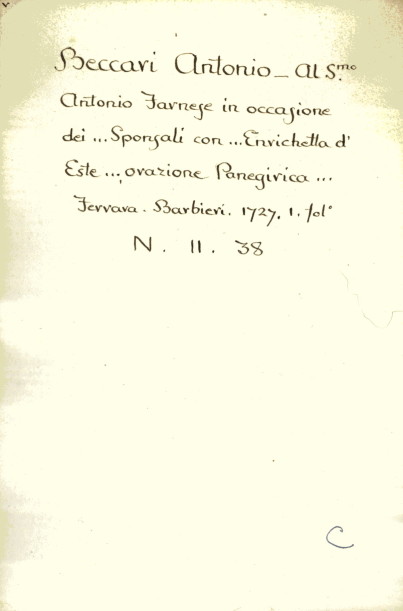 Beccari Antonio _ Al S.mo
Antonio Farnese in occasione
dei ... Sponsali con ... Enrichetta d'
Este ...; orazione Panegirica ...
Ferrara. Barbieri. 1727. 1. fol°
N. II. 38
C